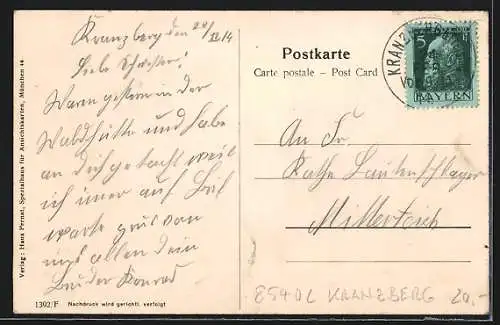 Kranzberg den 20/II 14
Liebe Schwester!
Waren gestern in der
Waldhütte und habe
an dich gedacht weil
ich imer auf
warte gruß von
uns allen dein
Bruder Konrad
Verlag: Hans Pernat, Spezialhaus für Ansichtskarten, München 44
1392/F Nachdruck wird gerichtl. verfolgt
Postkarte
Carte postale – Post Card
KRANZ
5
BAYERN
An Fr.
Kathe Lautenschlager
Mitterteich
85402 KRANZBERG 20.-